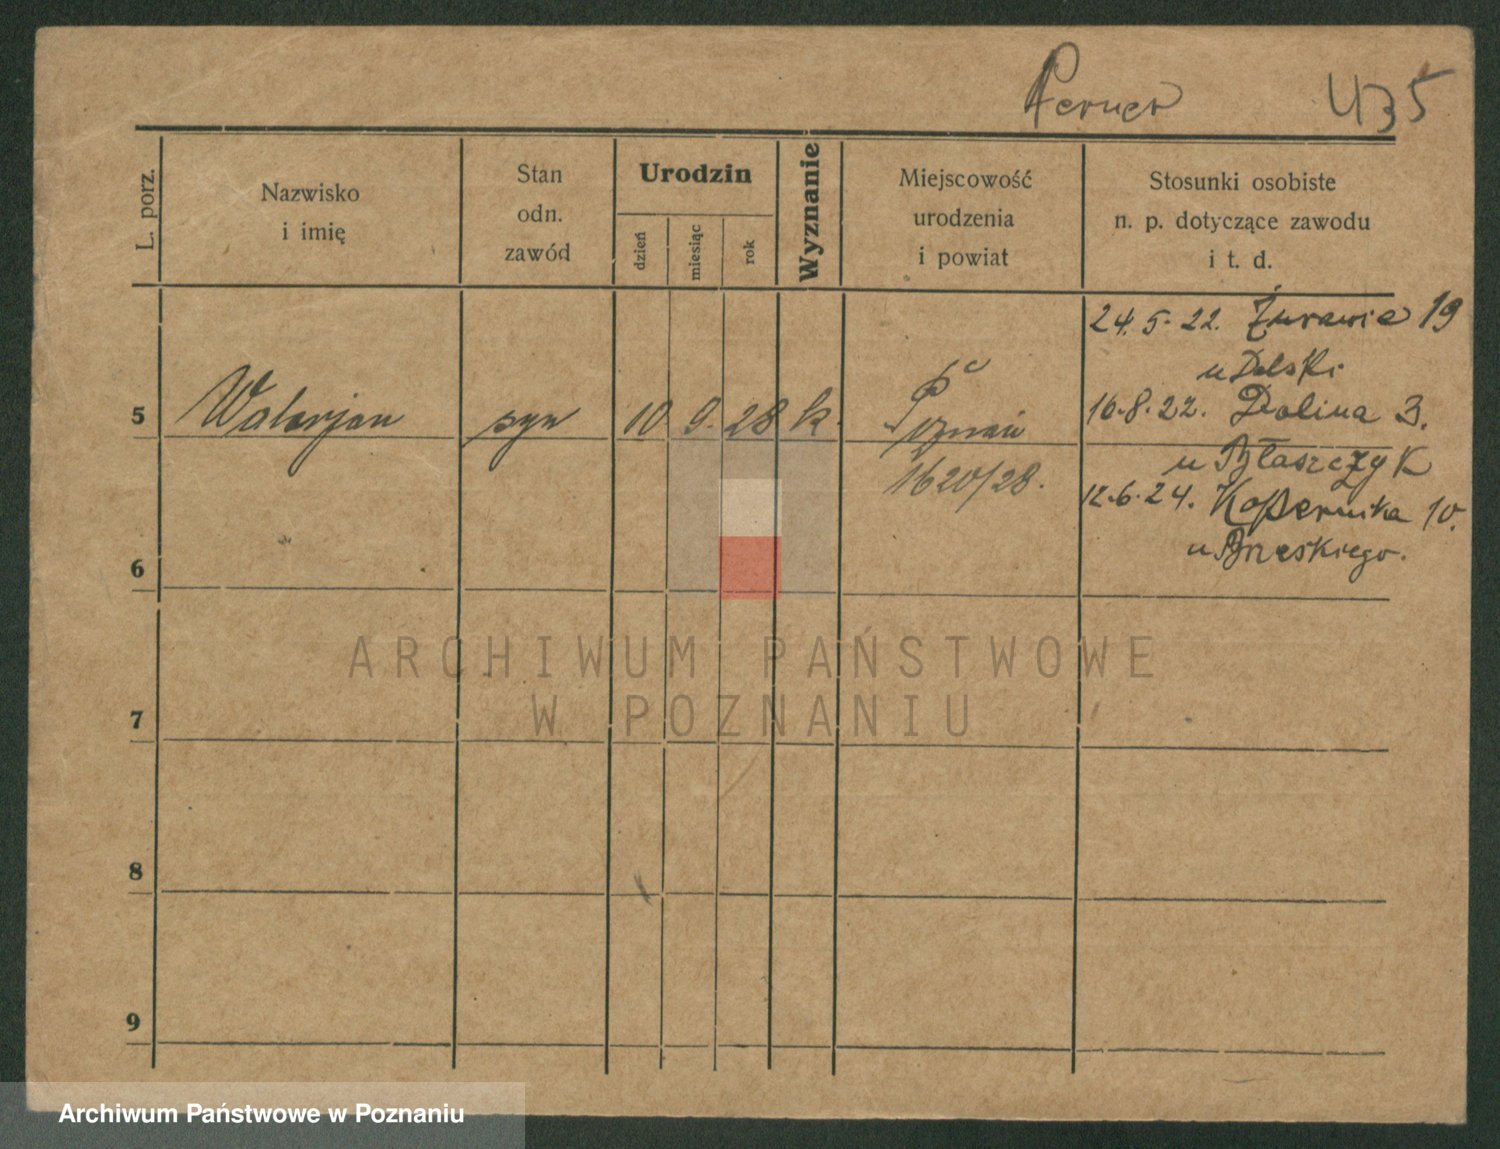 Perner 435
L. porz.
Nazwisko
i imię
Stan
odn.
zawód
Urodzin
dzień
miesiąc
rok
Wyznanie
Miejscowość
urodzenia
i powiat
Stosunki osobiste
n. p. dotyczące zawodu
i t. d.
24.5.22. Żurawia 19
u Dolski
16.8.22. Dolina 3.
5 Walerjan syn 10 9. 28 k. Poznań
1620/28.
u Błaszczyk
12.6.24. Kopernika 10.
u Brzeskiego.
6
7
8
9
ARCHIWUM PAŃSTWOWE
W POZNANIU
Archiwum Państwowe w Poznaniu